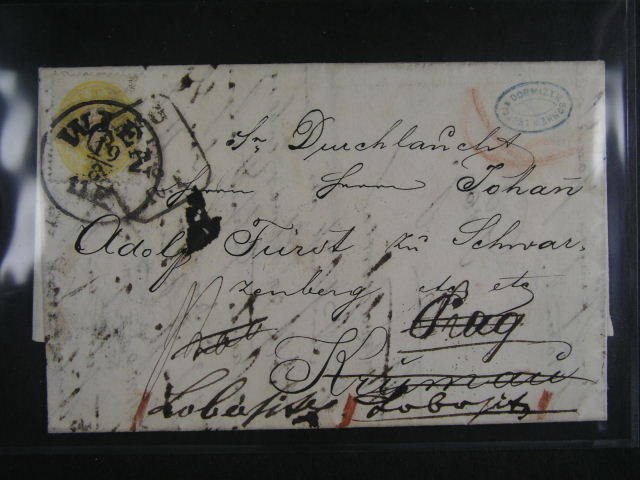 WIEN
Sr Durchlaucht
Herrn Herrn Johan̄
Adolf Fürst zu Schwar,
zenberg etc etc
Prag
Krumau
Lobositz Lobositz